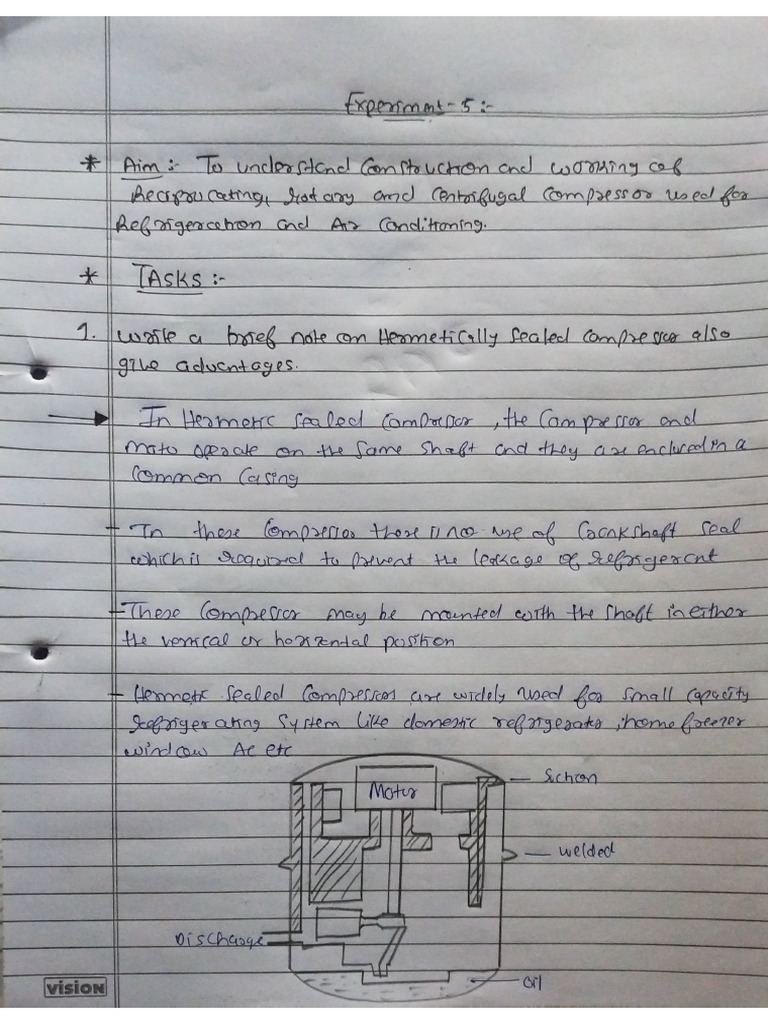 Experiment-5:-
* Aim:- To understand Construction and working of
Reciprocating, Rotary and Centrifugal Compressor used for
Refrigeration and Air Conditioning.
* TASKS:-
1. write a brief note on Hermetically Sealed Compressor also
give advantages.
In Hermetic Sealed Compressor, the Compressor and
Moto operate on the same shaft and they are enclused in a
Common Casing
- In these Compressor there is no use of Crankshaft seal
which is required to prevent the leakage of refrigerant
- These Compressor may be mounted with the shaft in either
the vertical or horizental position
- Hermetic Sealed Compressor are widely used for small capacity
refrigerating System like domestic refrigerator, home freezer
window Ac etc
Motor
- Suction
- welded
Discharge
- Oil
VISION